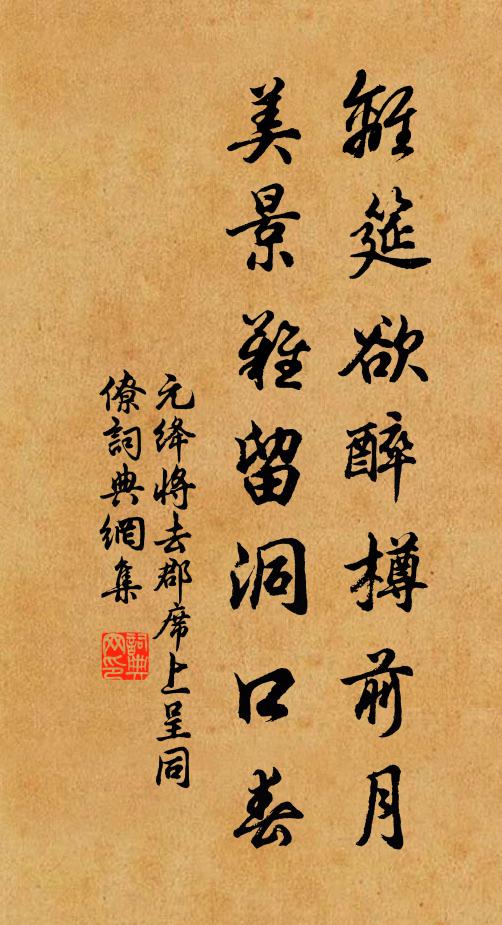 離筵欲醉樽前月
美景難留洞口春
元絳將去郡席上呈同
僚詞典網集
詞典網印